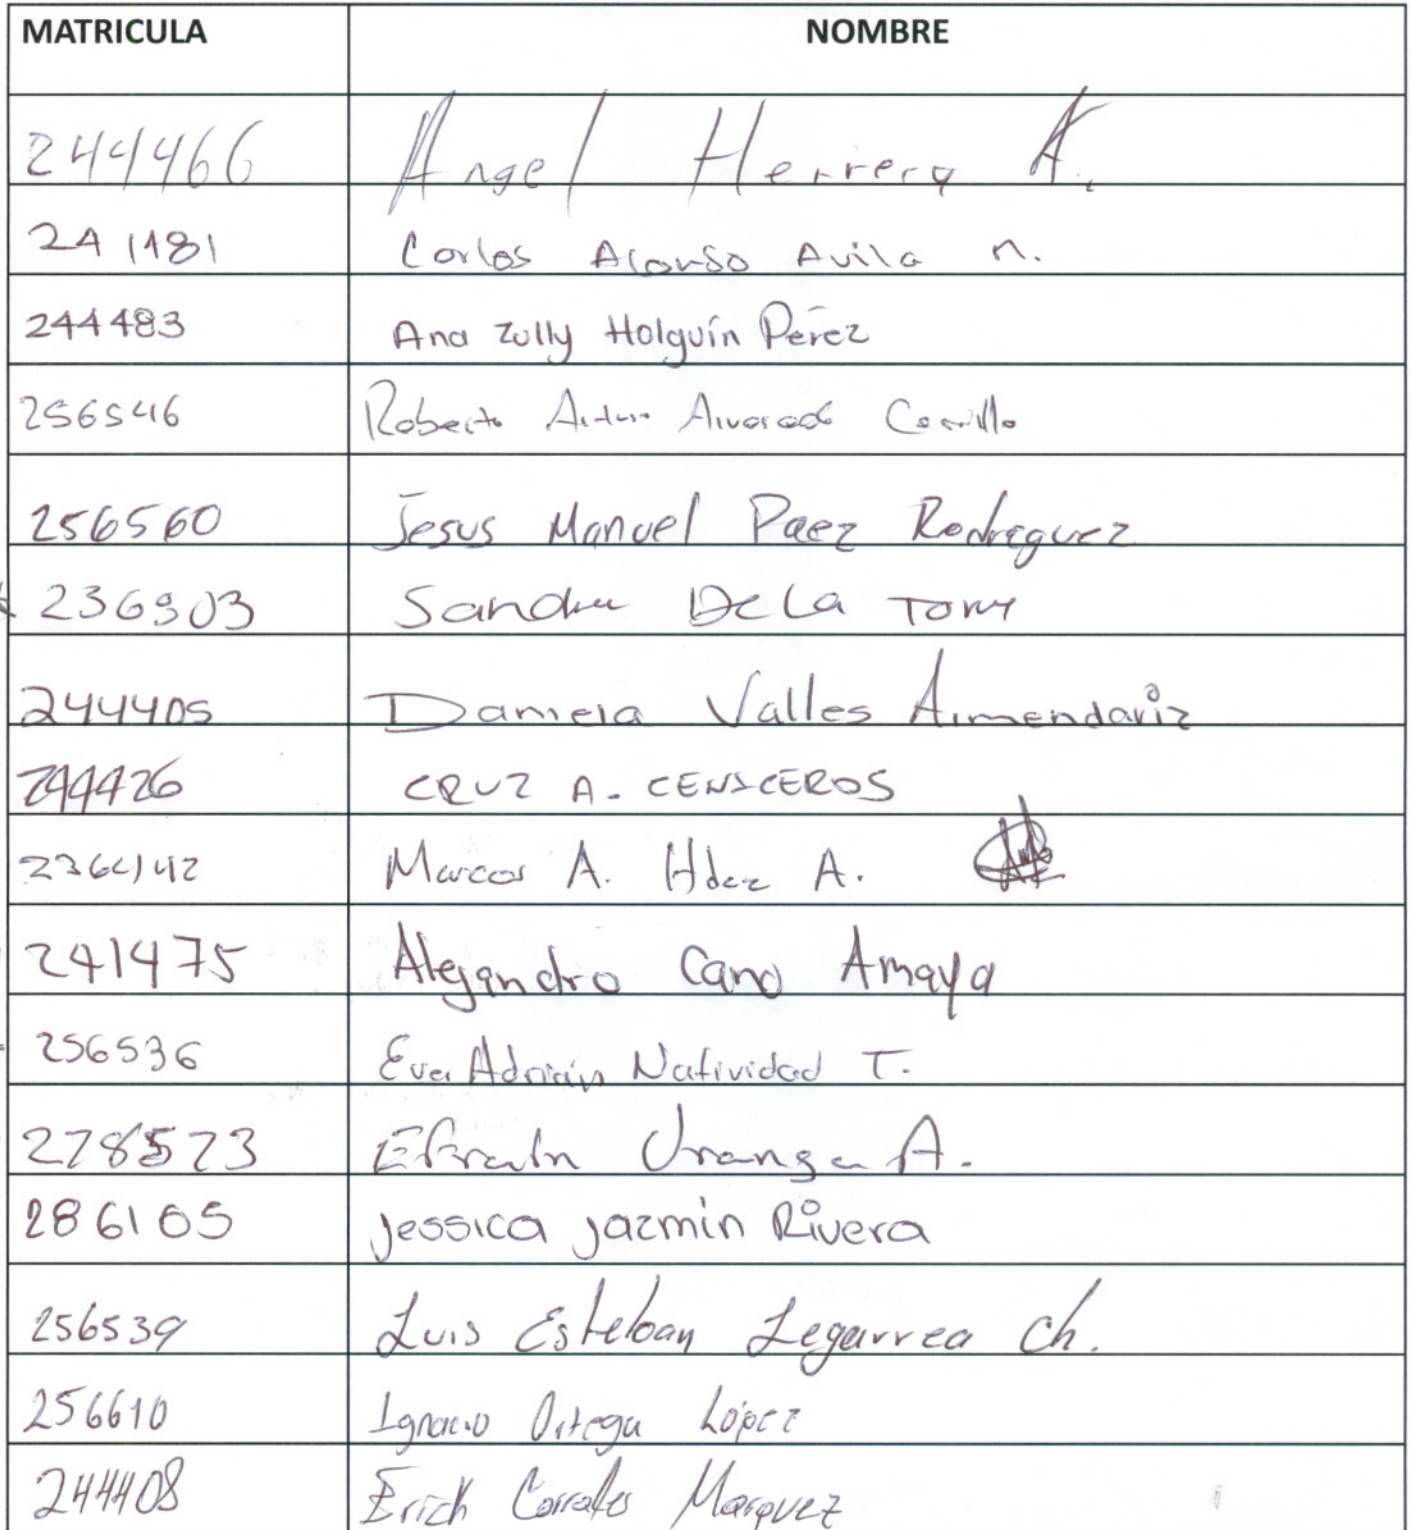 MATRICULA NOMBRE
244466 Angel Herrera A.
241181 Carlos Alonso Avila n.
244483 Ana Zully Holguín Pérez
256546 Roberto Arturo Alvarado Carrillo
256560 Jesus Manuel Paez Rodriguez
236903 Sandra De La Torre
244405 Daniela Valles Armendariz
244426 CRUZ A. CENICEROS
236442 Marcos A. Hdez A.
241475 Alejandro Cano Amaya
256536 Ever Adrián Natividad T.
278573 Efraín Uranga A.
286105 Jessica Jazmin Rivera
256539 Luis Esteban Legarrea Ch.
256610 Ignacio Ortega López
244408 Erich Corrales Marquez